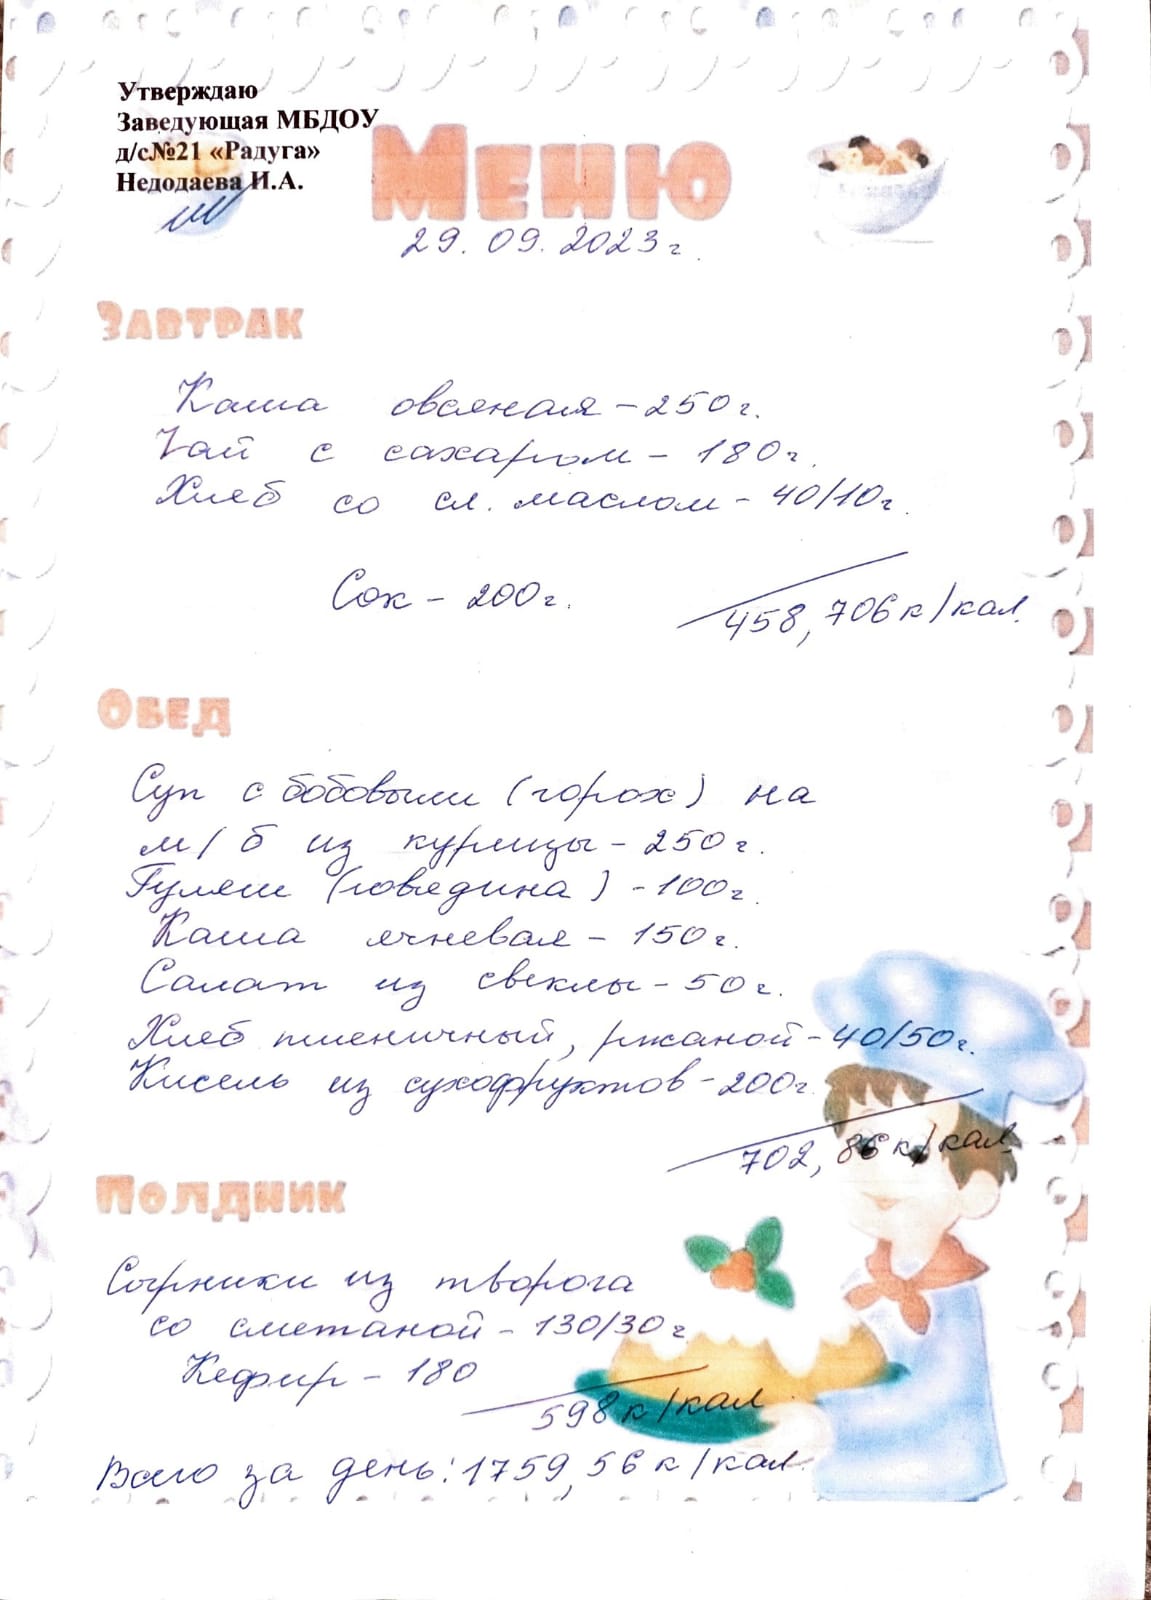 Утверждаю
Заведующая МБДОУ
д/с№21 «Радуга»
Недодаева И.А.
Меню
29.09.2023г.
Завтрак
Каша овсяная – 250г.
Чай с сахаром – 180г.
Хлеб со сл. маслом – 40/10г.
Сок – 200г.
458,706 к/кал.
Обед
Суп с бобовыми (горох) на
м/б из курицы – 250г.
Гуляш (говядина) – 100г.
Каша ячневая – 150г.
Салат из свеклы – 50г.
Хлеб пшеничный, ржаной – 40/50г.
Кисель из сухофруктов – 200г.
702,86 к/кал.
Полдник
Сырники из творога
со сметаной – 130/30г
Кефир – 180
598 к/кал
Всего за день: 1759,56 к/кал.